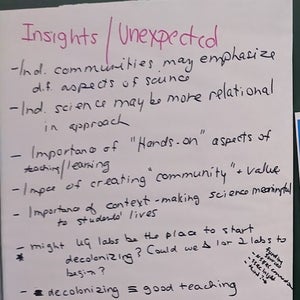 Insights / Unexpected
- Ind. communities may emphasize
d.f. aspects of science
- Ind. science may be more relational
in approach
- Importance of "Hands-on" aspects of
teaching/learning
- Impor of creating "community" + value
- Importance of context - making science meaningful
to students' lives
- might UG labs be the place to start
decolonizing? Could we Δ 1 or 2 labs to
begin?
- decolonizing = good teaching